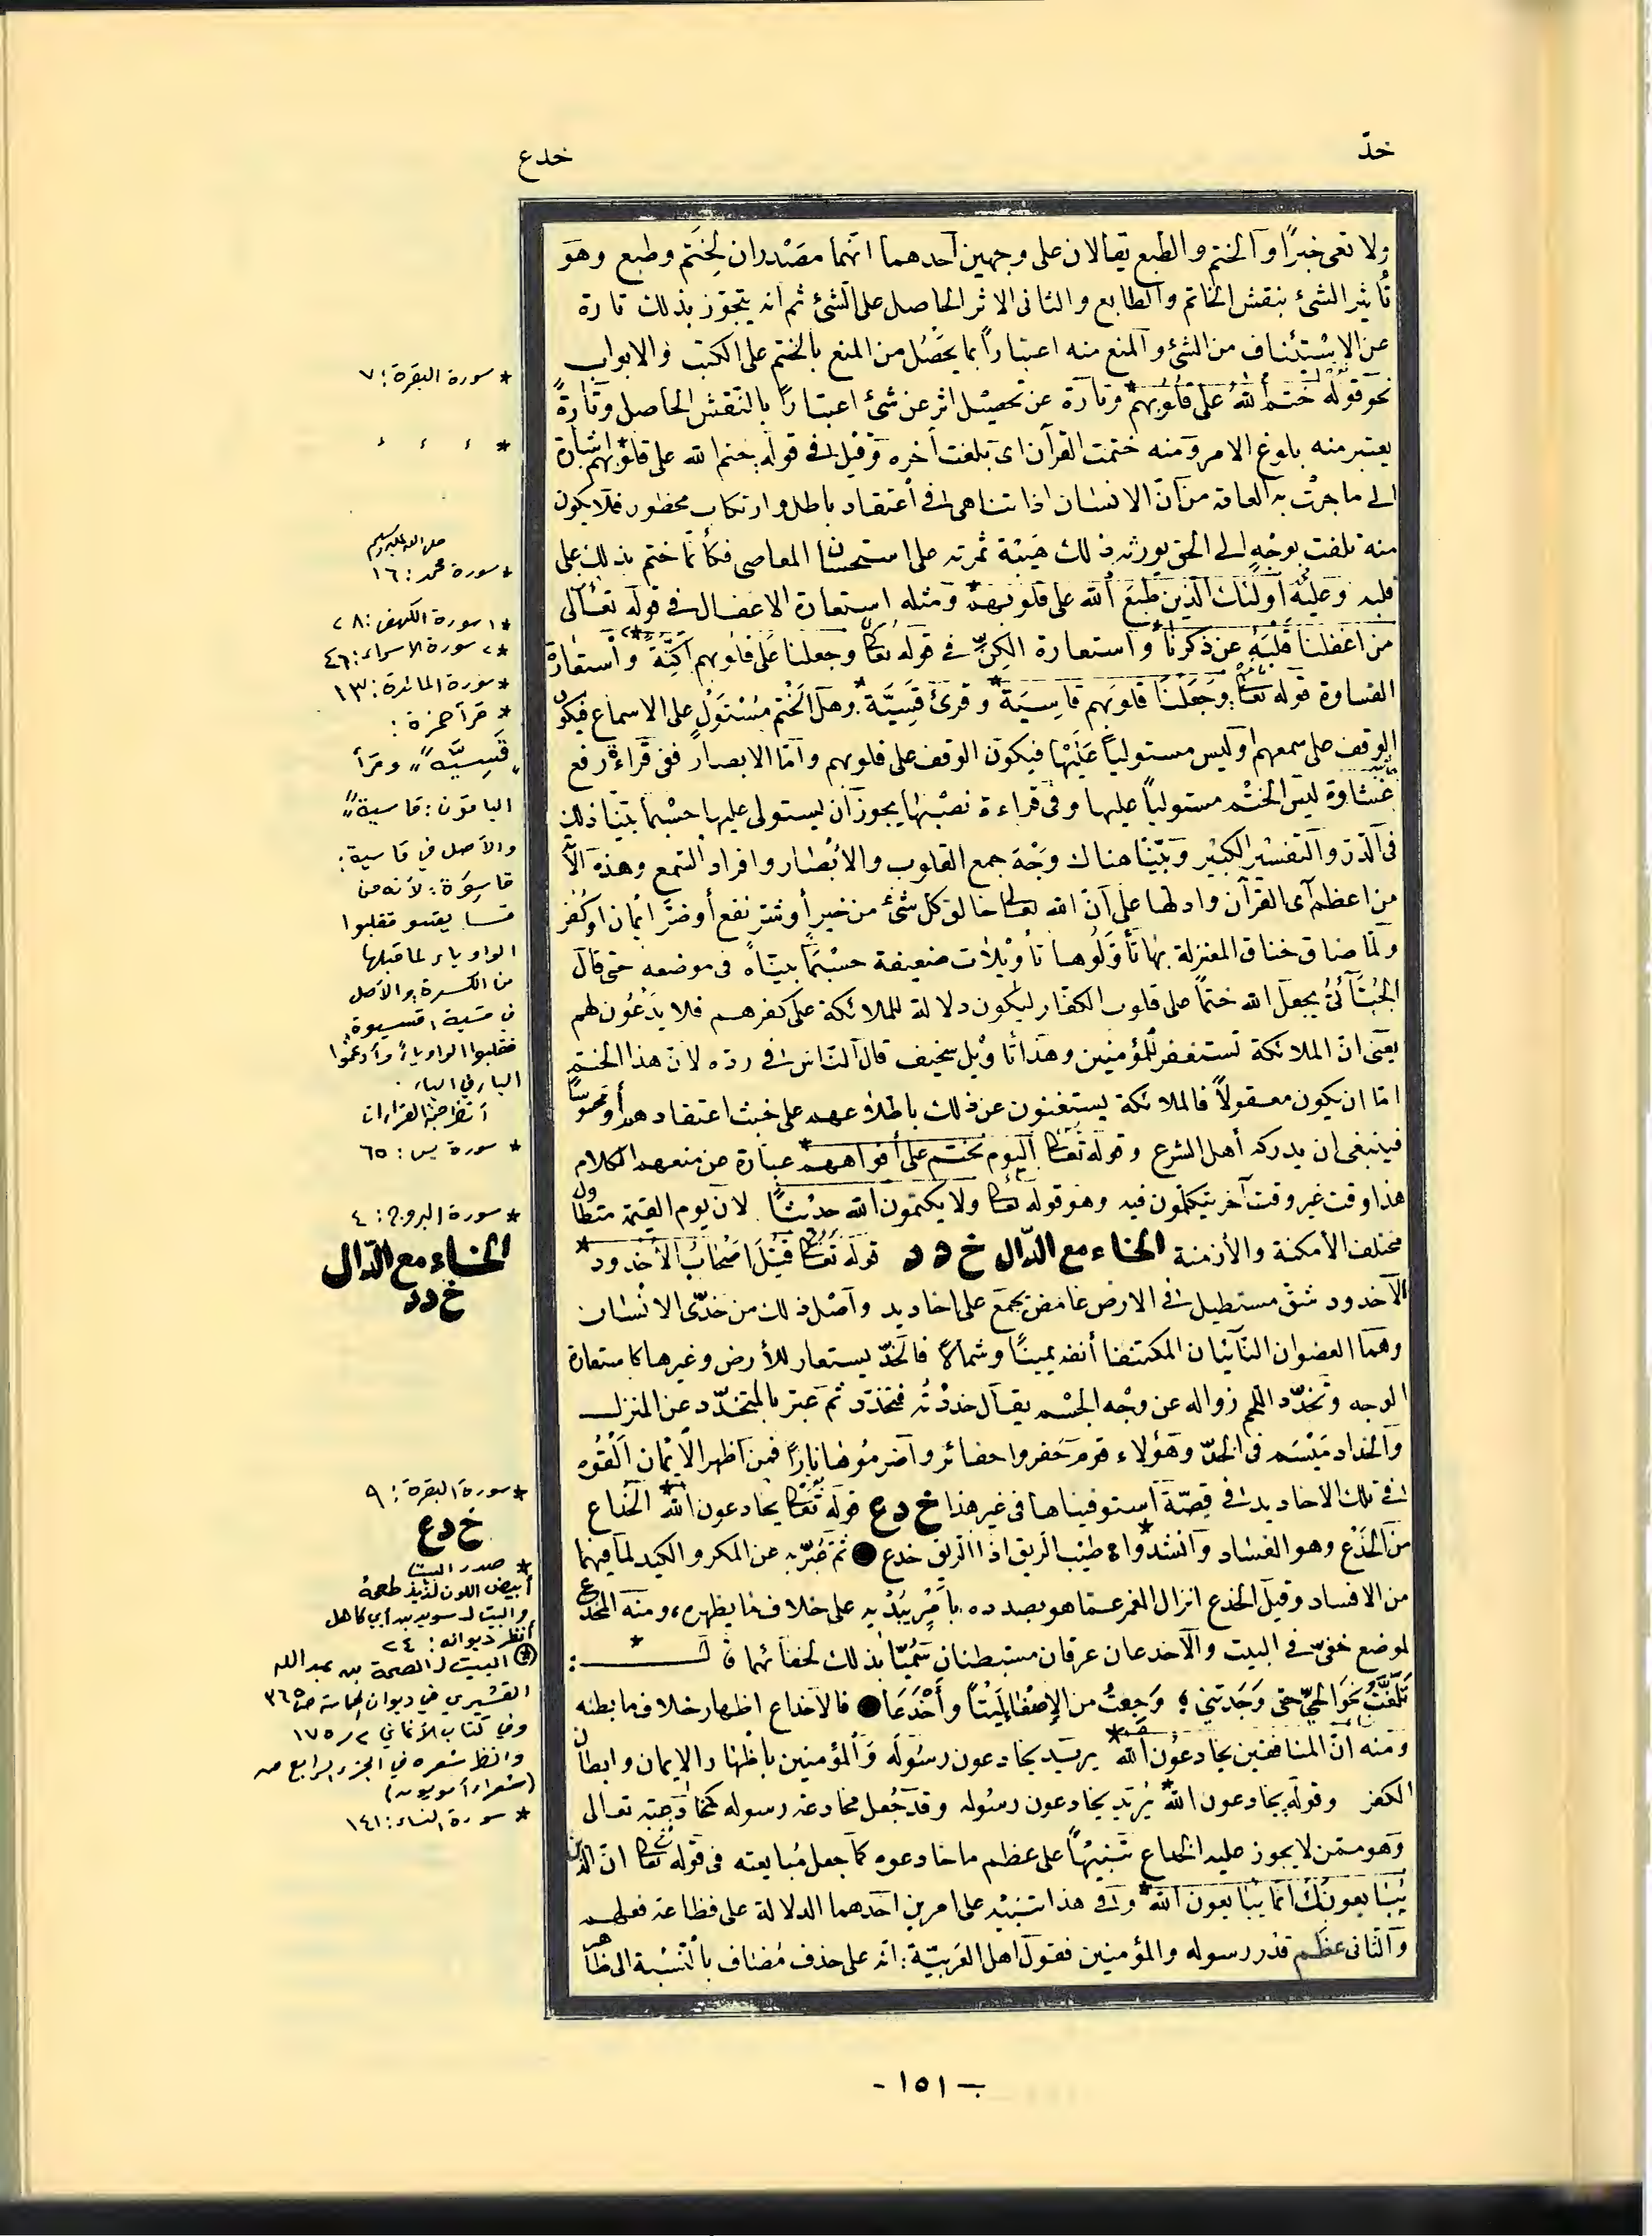 خدّ
خدع
ولا تعى خبرًا والختم والطبع يقالان على وجهين احدهما انهما مصدران لختم وطبع وهو
تأثير الشئ بنقش الخاتم والطابع والثانى الاثر الحاصل على الشئ ثم انه يتجوّز بذلك تارة
عن الاستئناف من الشئ والمنع منه اعتباراً بما يحصل من المنع بالختم على الكتب والابواب
نحو قوله ختم الله على قلوبهم* وتارة عن تحصيل اثر عن شئ اعتباراً بالنقش الحاصل وتارةً
يعتبر منه بلوغ الامر ومنه ختمت القرآن اى بلغت آخره وقيل فى قوله ختم الله على قلوبهم* اشارة
الى ما جرت به العادة من انّ الانسان اذا تناهى فى اعتقاد باطل وارتكاب محظور فلا يكون
منه تلفت بوجهٍ الى الحق يورثه ذلك هيئة تمرنه على استحسان المعاصى فكأنما ختم بذلك على
قلبه وعليه أولئك الذين طبع الله على قلوبهم* ومثله استعارة الاغفال فى قوله تعالى
من اغفلنا قلبه عن ذكرنا* واستعارة الكنّ فى قوله تعالى وجعلنا على قلوبهم اكنّةً* واستعارة
القساوة قوله تعالى وجعلنا قلوبهم قاسيةً* وقرئ قسيّة* وهل الختم مستولٍ على الاسماع فيكون
الوقف على سمعهم أوليس مستولياً عليها فيكون الوقف على قلوبهم وامّا الابصار ففى قراءة رفع
غشاوة ليس الختم مستولياً عليها وفى قراءة نصبها يجوز ان يستولى عليها حسبما بيّنا ذلك
فى الدّرّ والتفسير الكبير وبيّنّا هناك وجه جمع القلوب والابصار وافراد السّمع وهذه الآ
من اعظم آى القرآن وادلها على انّ الله تعالى خالق كل شئ من خير أو شرّ نفع أو ضرّ ايمان او كفر
ولمّا ضاق خناق المعتزلة بها تأوّلوها تأويلات ضعيفة حسبما بيّناه فى موضعه حتى قال
الجبّائىّ يجعل الله ختماً على قلوب الكفار ليكون دلالة للملائكة على كفرهم فلا يدعون لهم
يعنى انّ الملائكة تستغفر للمؤمنين وهذا تأويل سخيف قال الناس فى ردّه لان هذا الختم
امّا ان يكون معقولاً فالملائكة يستغنون عن ذلك باطلاعهم على خبث اعتقادهم أو محسوسًا
فينبغى ان يدركه أهل الشرع وقوله تعالى اليوم نختم على أفواههم* عبارة عن منعهم الكلام
هذا وقت غير وقت آخر يتكلّمون فيه وهو قوله تعالى ولا يكتمون الله حديثًا لان يوم القيمة متطاول
مختلف الأمكنة والأزمنة الخاء مع الدّال خ د د قوله تعالى قتل اصحاب الاخدود*
الاخدود شق مستطيل فى الارض غامض يجمع على اخاديد وأصل ذلك من خدّى الانسان
وهما العضوان النّاتيان المكتنفا أنفه يمينًا وشمالاً فالخدّ يستعار للأرض وغيرها كاستعارة
الوجه وتخدّد اللحم زواله عن وجه الجسم يقال خددته فتخدّد ثم عبّر بالمتخدّد عن المنزل
والخداد ميسم فى الخدّ وهؤلاء قوم حفروا حفائر واضرموها نارًا فمن اظهر الايمان القوه
فى تلك الاخاديد فى قصّة استوفيناها فى غير هذا خ د ع قوله تعالى يخادعون الله* الخداع
من الخدع وهو الفساد وانشدوا ه* طيّب الريق اذا الريق خدع ● ثم عبّر به عن المكر والكيد لما فيهما
من الافساد وقيل الخدع انزال الغير عمّا هو بصدده بأمر يبديه على خلاف ما يظهره ومنه المخدع
لموضع خفىّ فى البيت والاخدعان عرقان مستبطنان سمّيا بذلك لخفائهما قال*:
تلفّتّ نحو الحىّ حتى وجدتنى ه وجعتُ من الإصغا ليتًا وأخدعا ● فالاخداع اظهار خلاف ما بطنه
ومنه انّ المنافقين يخادعون الله* يريد يخادعون رسوله والمؤمنين باظهار الايمان وابطان
الكفر وقوله يخادعون الله* يريد يخادعون رسوله وقد جعل مخادعة رسوله كمخادعته تعالى
وهو ممّن لا يجوز عليه الخداع تنبيهًا على عظم ما خادعوه كما جعل مبايعته فى قوله تعالى انّ الذين
يبايعونك انما يبايعون الله* وفى هذا تنبيه على امرين احدهما الدلالة على فظاعة فعلهم
والثانى عظم قدر رسوله والمؤمنين فقول اهل العربيّة: انه على حذف مضاف بالنّسبة الى ظاهر
* سورة البقرة: ٧
* ء ء ء
صلى الله عليه وسلم
* سورة محمد: ١٦
*١ سورة الكهف: ٢٨
*٢ سورة الإسراء: ٤٦
* سورة المائدة: ١٣
* قرأ حمزة:
"قَسِيَّة" وقرأ
الباقون: قاسية"
والأصل في قاسية:
قاسِوَة: لأنه من
قسا يقسو فقلبوا
الواو ياء لما قبلها
من الكسرة، والأصل
في قسية، قسيوة،
فقلبوا الواو ياءً وأدغموا
الياء في الياء.
أنظر حجة القراءات
* سورة يس: ٦٥
* سورة البروج: ٤
الخاء مع الدّال
خ د د
* سورة البقرة: ٩
خ د ع
* صدر البيت
أبيض اللون لذيذ طعمهُ
والبيت لـ سويد بن أبي كاهل
أنظر ديوانه: ٢٤
(*) البيت لـ الصمة بن عبد الله
القشيري في ديوان الحماسة ص ٣٦٥
وفي كتاب الأغاني ٢/١٧٥
وانظر شعره في الجزء الرابع من
(شعراء أمويون)
* سورة النساء: ١٤١
- ١٥١ -